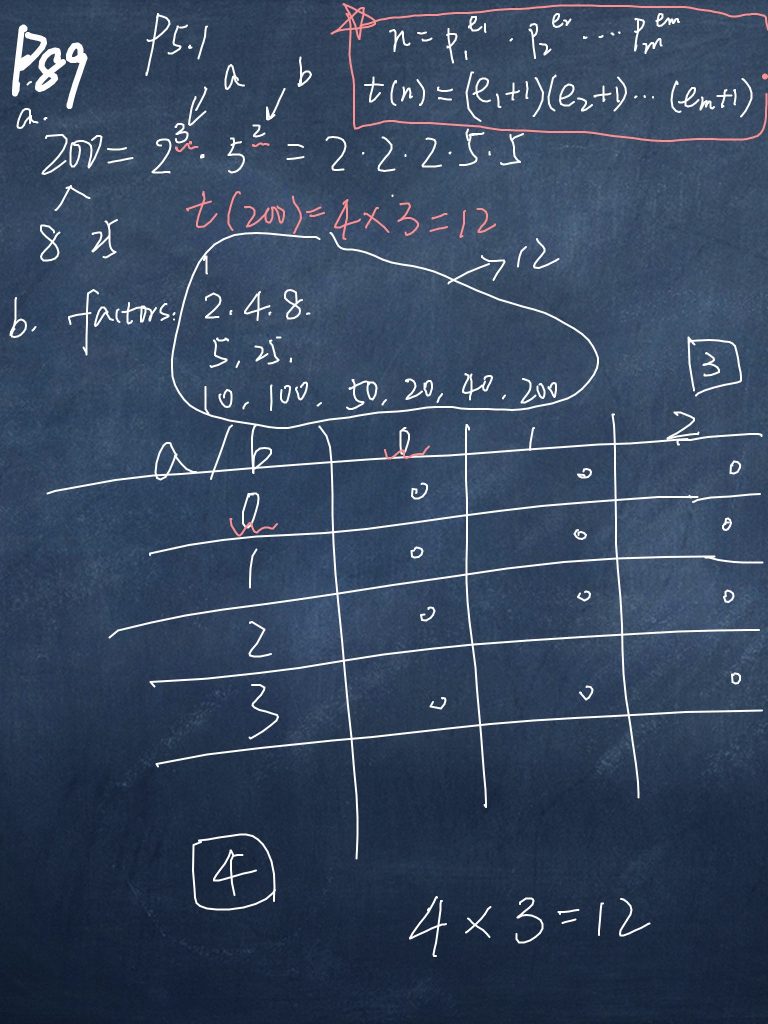 P.89
P5.1
n = p₁^e₁ · p₂^e₂ ···· pₘ^eₘ
t(n) = (e₁+1)(e₂+1)··· (eₘ+1)
a b
a.
200 = 2³ · 5² = 2·2·2·5·5
8 25
t(200) = 4×3=12
12
b. factors:
1
2. 4. 8.
5, 25.
10, 100. 50, 20, 40, 200
3
a/b 0 1 2
0 o o o
1 o o o
2 o o o
3 o o o
4
4 × 3 = 12